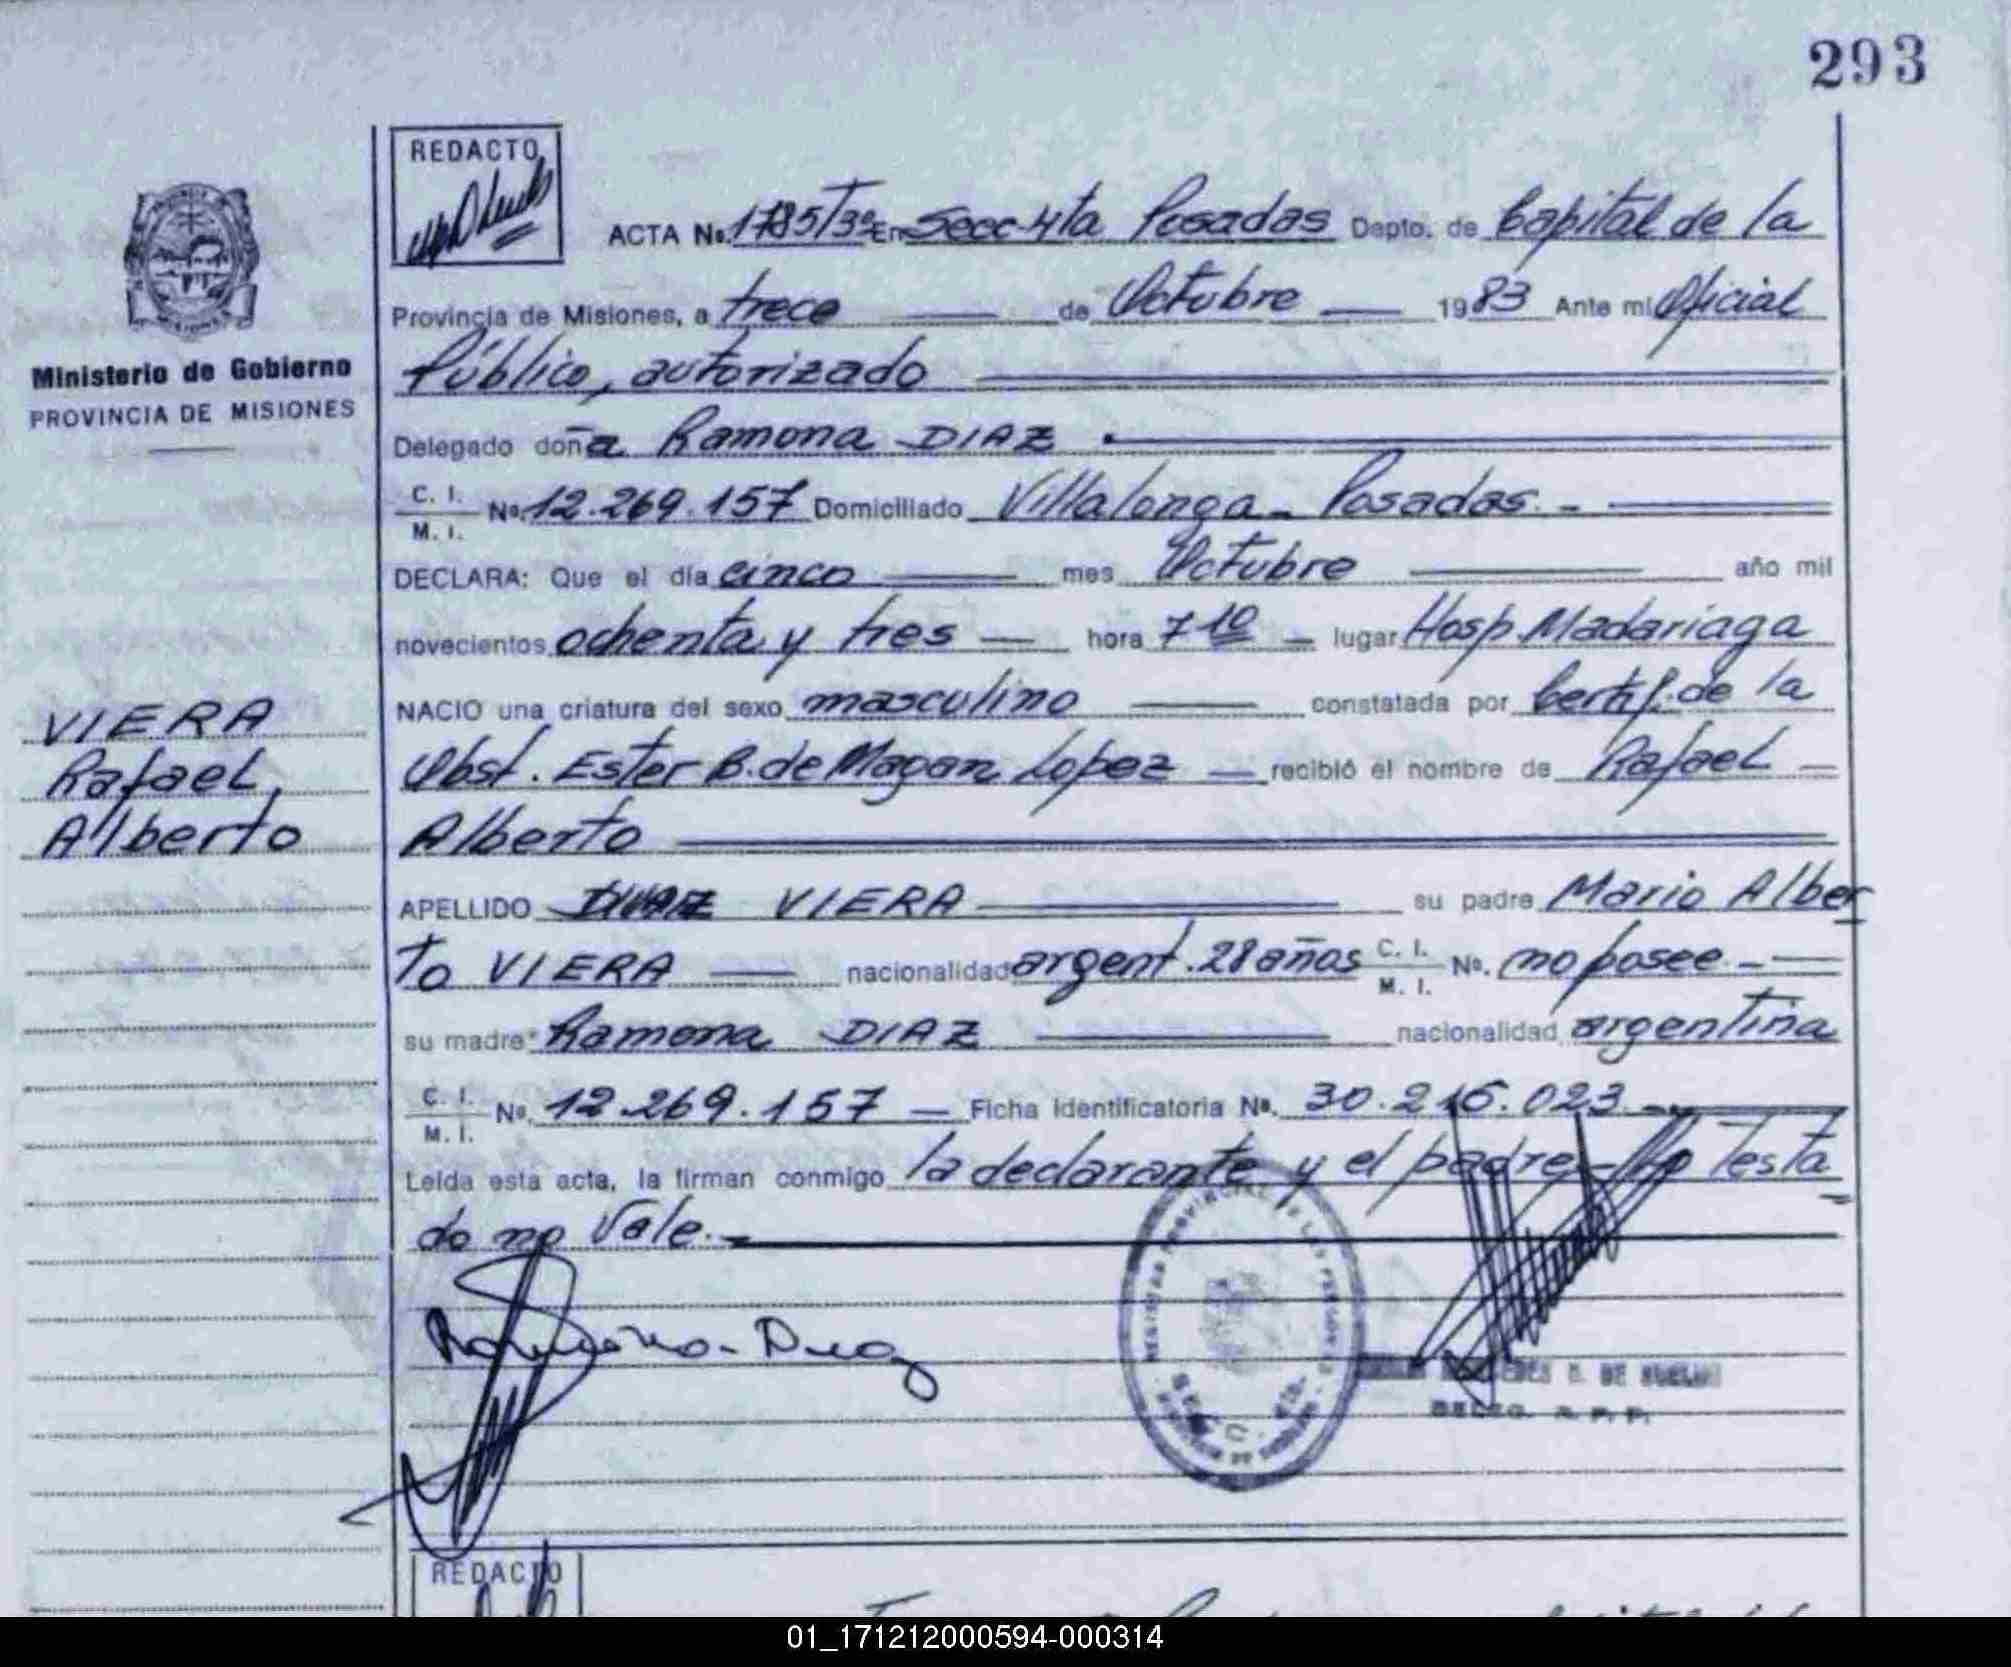 293
REDACTO
ACTA No. 1785/T3º En Secc 4ta Posadas Depto. de Capital de la
Provincia de Misiones, a trece de Octubre 1983 Ante mi Oficial
Público, autorizado
Ministerio de Gobierno
PROVINCIA DE MISIONES
Delegado doña Ramona DIAZ
C. I.
M. I.
No. 12.269.157 Domiciliado Villalonga - Posadas. -
DECLARA: Que el día cinco mes Octubre año mil
novecientos ochenta y tres hora 7 10 lugar Hosp. Madariaga
NACIO una criatura del sexo masculino constatada por Certif. de la
Obst. Ester B. de Magan Lopez recibió el nombre de Rafael
Alberto
VIERA
Rafael
Alberto
APELLIDO VIERA su padre Mario Alber
to VIERA nacionalidad argent. 28 años C. I. M. I. No. no posee. -
su madre Ramona DIAZ nacionalidad argentina
C. I.
M. I.
No. 12.269.157 Ficha Identificatoria No. 30.216.023
Leída esta acta, la firman conmigo la declarante y el padre. Lo Testa
do no Vale. -
Ramona Diaz
DE
DELEG. R. P. P.
REDACTO
01_171212000594-000314